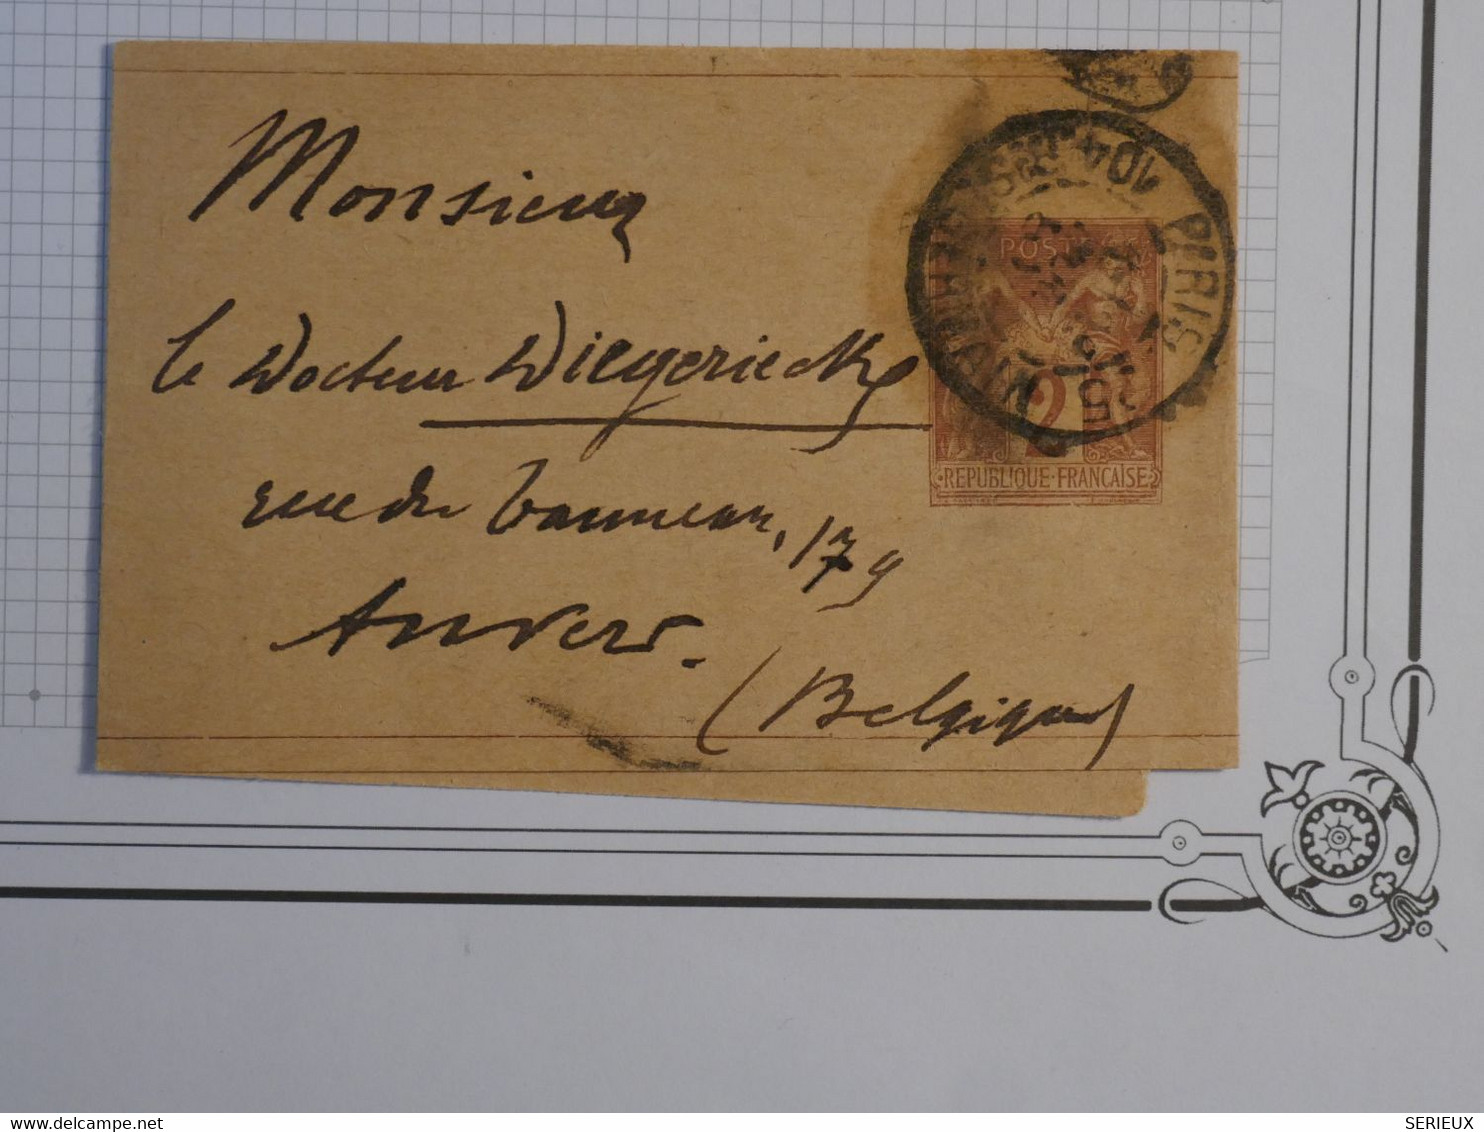 Monsieur
le Docteur Wiegerieck
rue du Vanneau, 179
Anvers.
(Belgique)
PARIS
104
POSTES
2
REPUBLIQUE·FRANÇAISE
delcampe.net
SERIEUX